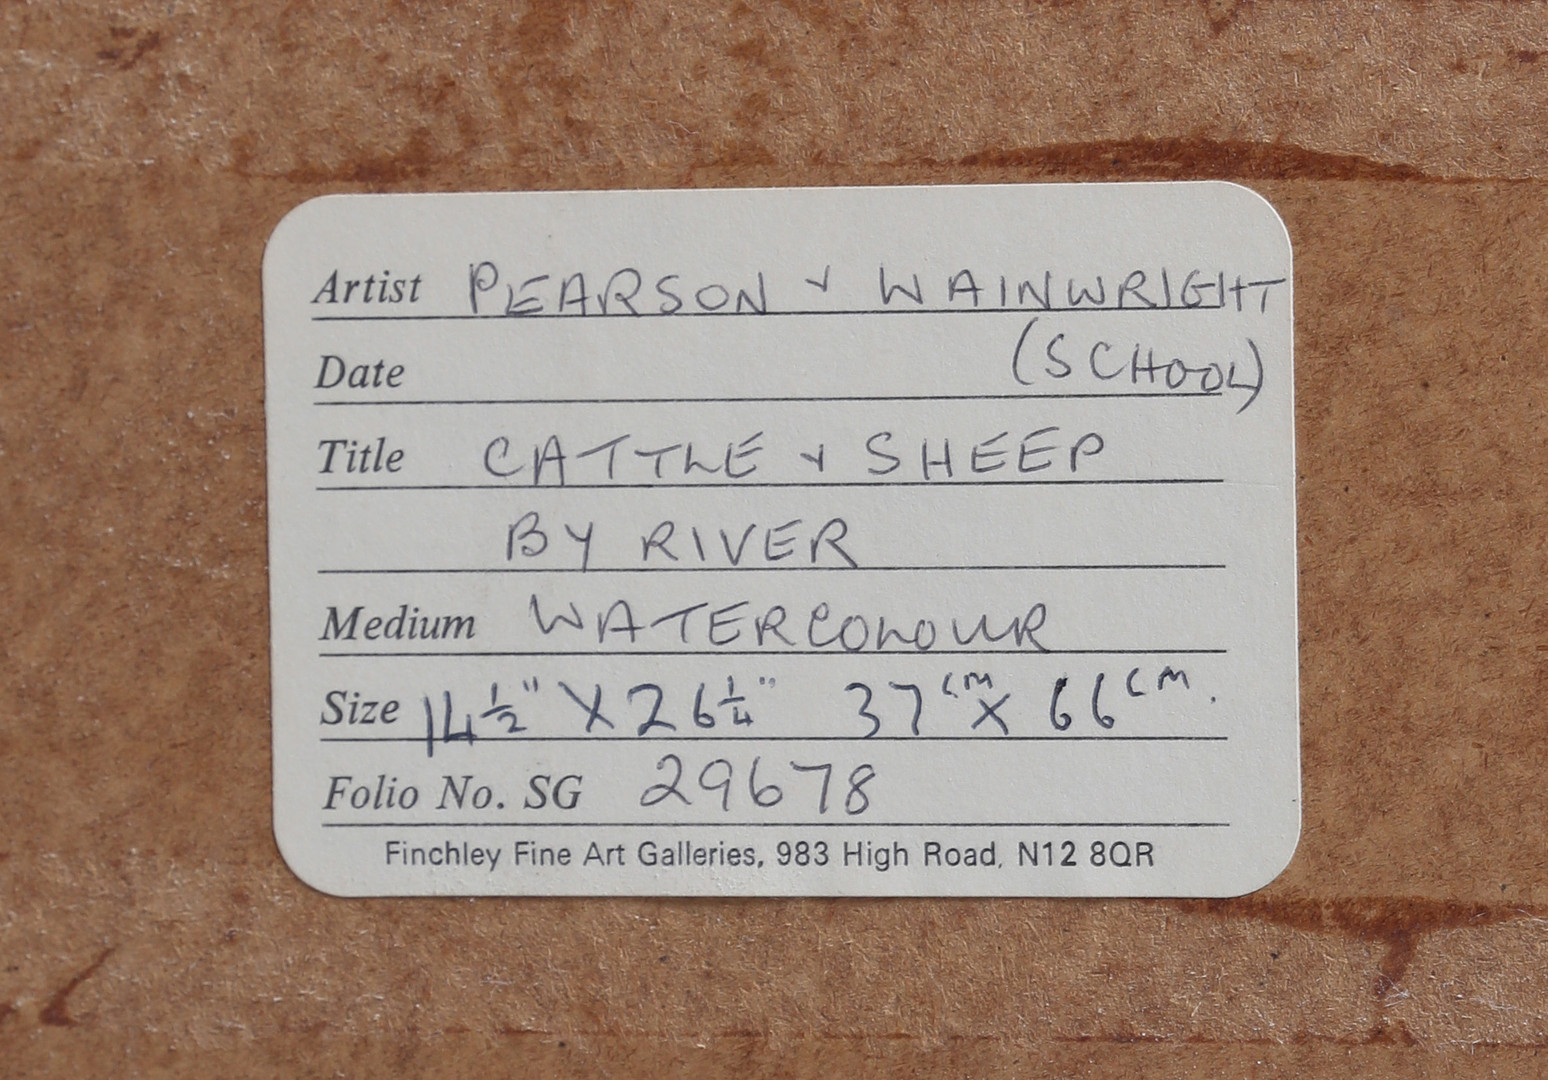 Artist PEARSON & WAINWRIGHT
Date (SCHOOL)
Title CATTLE & SHEEP
BY RIVER
Medium WATERCOLOUR
Size 14½" X 26¼" 37cm X 66cm.
Folio No. SG 29678
Finchley Fine Art Galleries, 983 High Road, N12 8QR